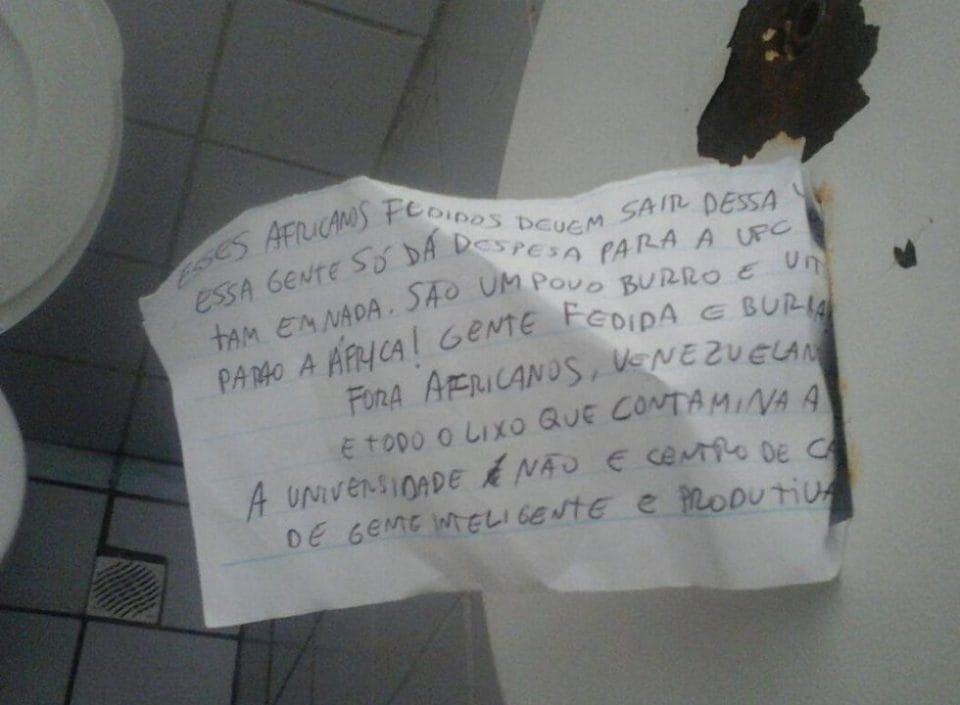 ESSES AFRICANOS FEDIDOS DEVEM SAIR DESSA
ESSA GENTE SÓ DÁ DESPESA PARA A UFC
TAM EM NADA. SÃO UM POVO BURRO E
PARAO A ÁFRICA! GENTE FEDIDA E BURRA
FORA AFRICANOS, VENEZUELAN
E TODO O LIXO QUE CONTAMINA A
A UNIVERSIDADE NÃO E CENTRO DE CA
DE GENTE INTELIGENTE E PRODUTIVA